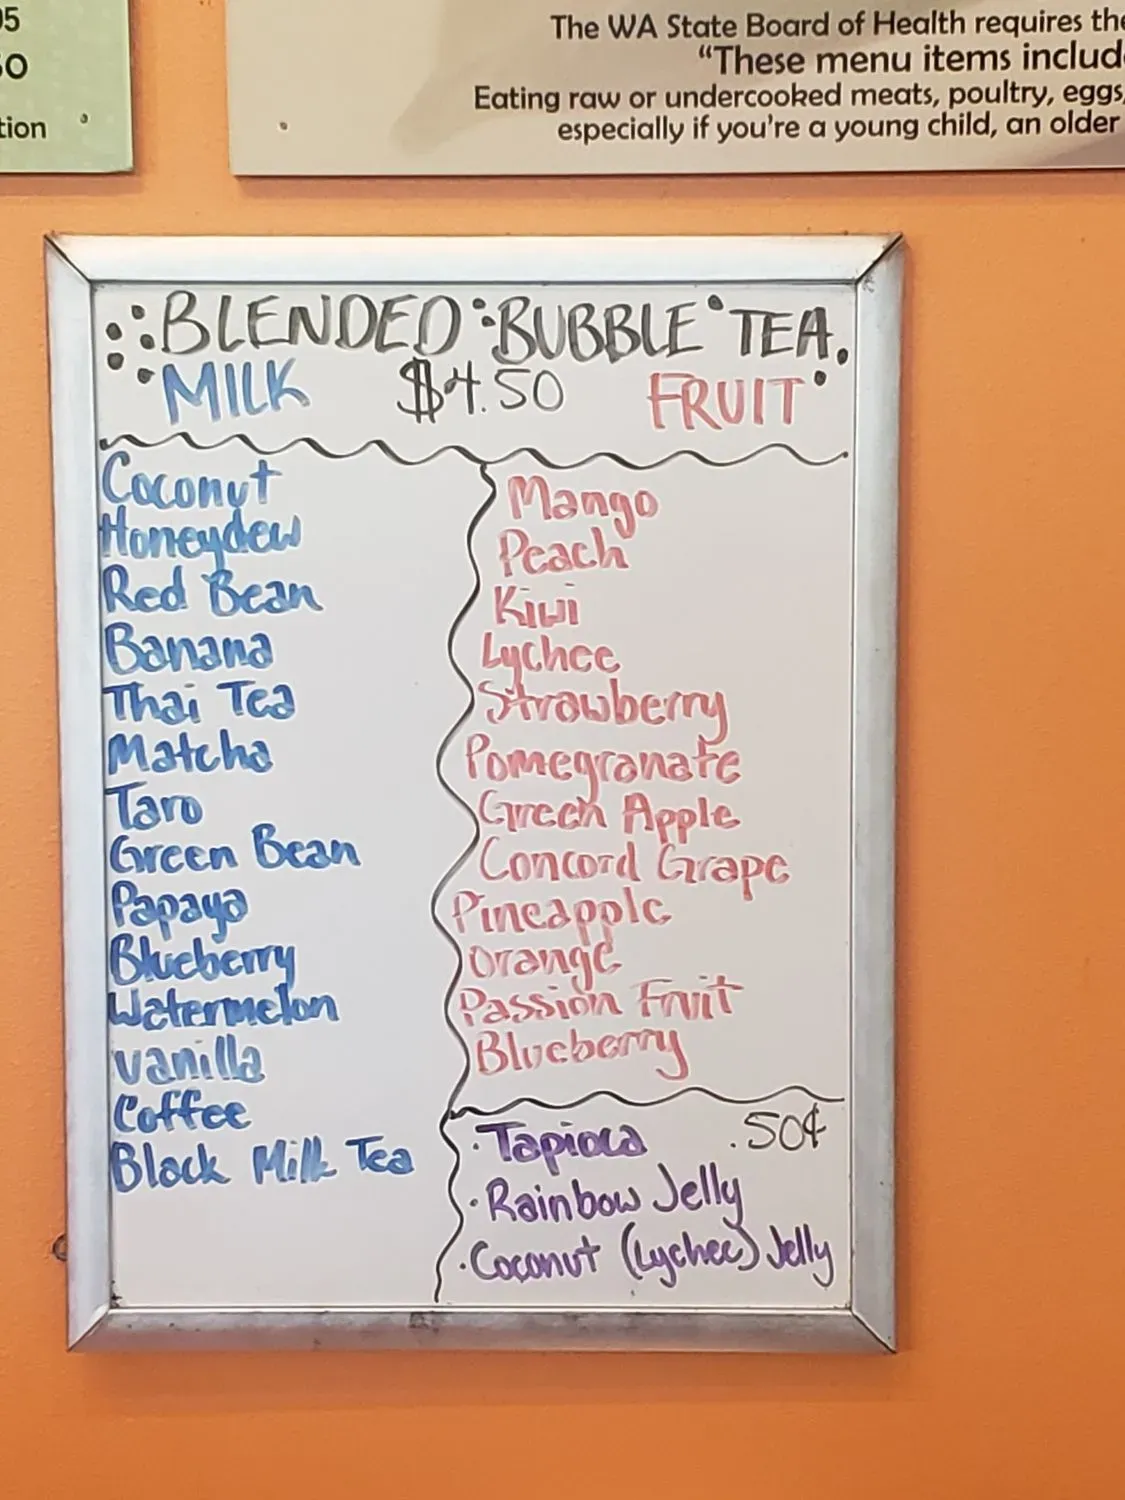 05
50
tion
The WA State Board of Health requires the
"These menu items includ
Eating raw or undercooked meats, poultry, eggs,
especially if you're a young child, an older
BLENDED BUBBLE TEA
MILK $4.50 FRUIT
Coconut
Honeydew
Red Bean
Banana
Thai Tea
Matcha
Taro
Green Bean
Papaya
Blueberry
Watermelon
vanilla
Coffee
Black Milk Tea
Mango
Peach
Kiwi
Lychee
Strawberry
Pomegranate
Green Apple
Concord Grape
Pineapple
Orange
Passion Fruit
Blueberry
· Tapioca .50¢
· Rainbow Jelly
· Coconut (Lychee) Jelly